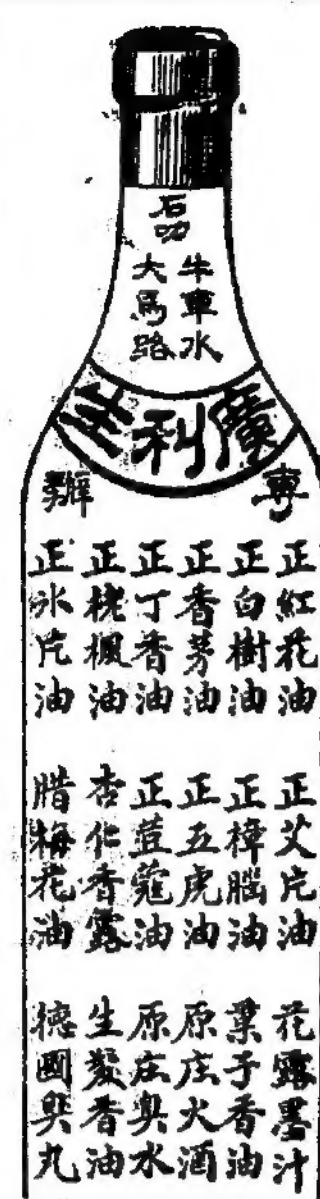 石叻
牛車水
大馬路
廣利生
專辦
正紅花油
正白樹油
正香茅油
正丁香油
正桃楓油
正冰片油
正艾片油
正樟腦油
正五虎油
正荳蔻油
杏仁香露
腊梅花油
花露墨汁
菓子香油
原庄火酒
原庄臭水
生髮香油
德國臭丸